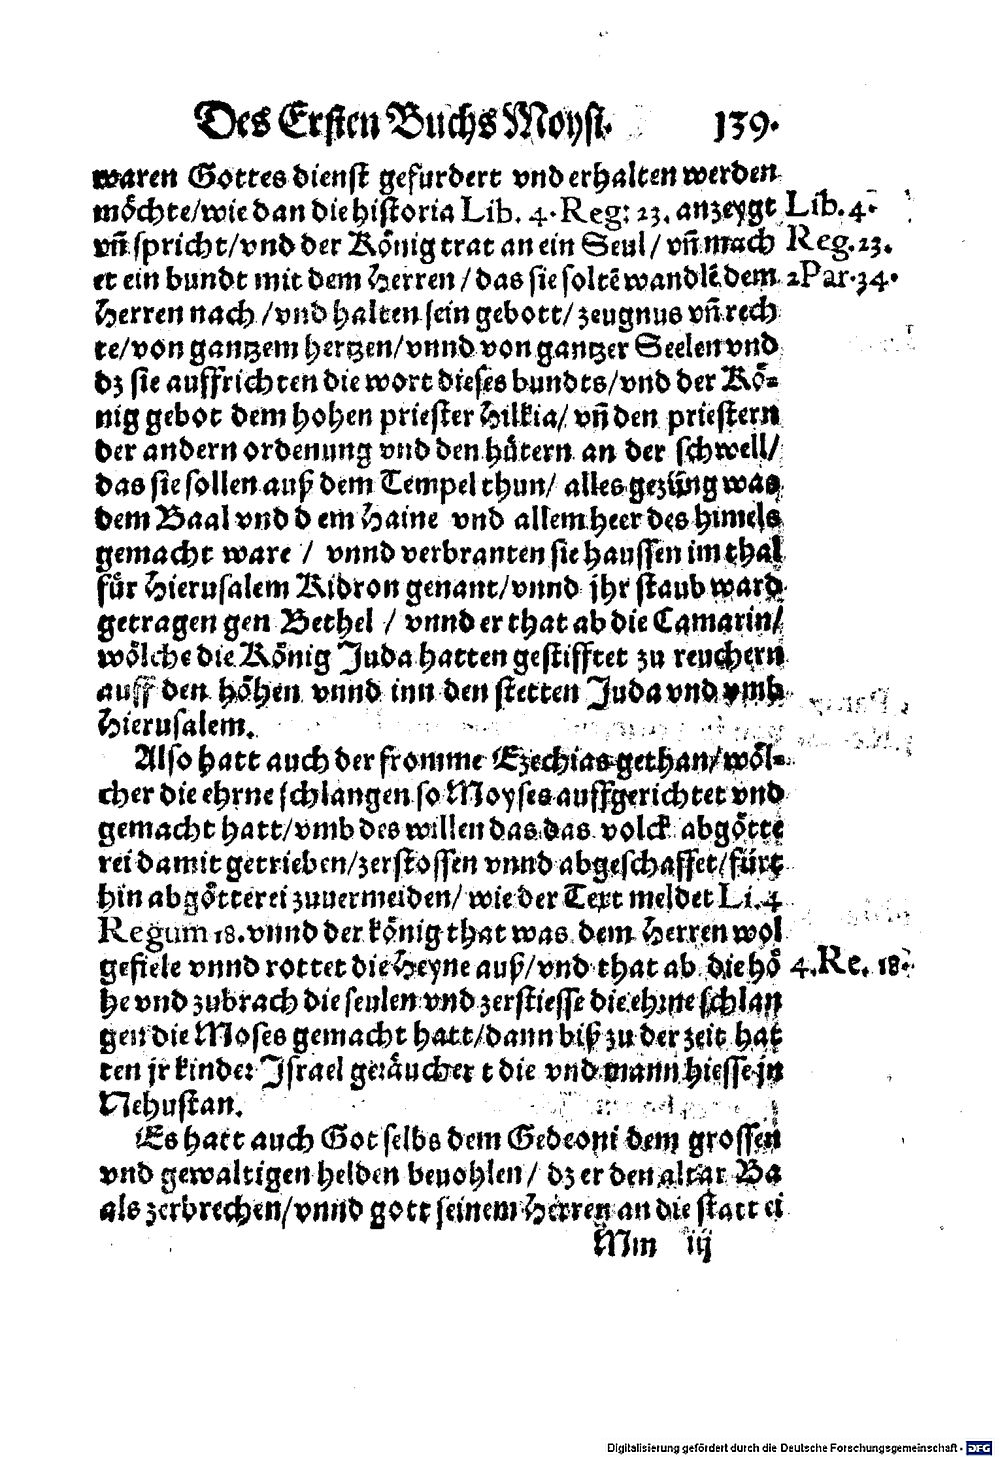 Des Ersten Buchs Moysi. 139.
waren Gottes dienst gefurdert vnd erhalten werden
möchte/wie dan die historia Lib. 4. Reg: 23. anzeygt Lib. 4.
vñ spricht/vnd der König trat an ein Seul/ vñ mach Reg. 23.
et ein bundt mit dem Herren/das sie soltẽ wandlẽ dem 2 Par. 34.
Herren nach/vnd halten sein gebott/zeugnus vñ rech
te/von gantzem hertzen/vnnd von gantzer Seelen vnd
dz sie auffrichten die wort dieses bundts/vnd der Kö-
nig gebot dem hohen priester Hilkia/ vñ den priestern
der andern ordenung vnd den hütern an der schwell/
das sie sollen auß dem Tempel thun/ alles gezüng was
dem Baal vnd dem Haine vnd allem heer des himels
gemacht ware / vnnd verbranten sie haussen im thal
für Hierusalem Kidron genant/vnnd jhr staub ward
getragen gen Bethel / vnnd er that ab die Camarin/
wölche die König Juda hatten gestifftet zu reuchern
auff den höhen vnnd inn den stetten Juda vnd vmb
Hierusalem.
Also hatt auch der fromme Ezechias gethan/wöl-
cher die ehrne schlangen so Moyses auffgerichtet vnd
gemacht hatt/vmb des willen das das volck abgötte
rei damit getrieben/zerstossen vnnd abgeschaffet/fürt
hin abgötterei zuuermeiden/ wie der Text meldet Li. 4
Regum 18. vnnd der könig that was dem Herren wol
gefiele vnnd rottet die Heyne auß/vnd that ab die hö 4. Re. 18.
he vnd zubrach die seulen vnd zerstiesse die ehrne schlan
gen die Moses gemacht hatt/dann biß zu der zeit hat
ten jr kinder Israel geräuchert die vnd mann hiesse jn
Nehustan.
Es hatt auch Got selbs dem Gedeoni dem grossen
vnd gewaltigen helden beuohlen/ dz er den altar Ba
als zerbrechen/vnnd gott seinem Herren an die statt ei
Mm iij
Digitalisierung gefördert durch die Deutsche Forschungsgemeinschaft - DFG